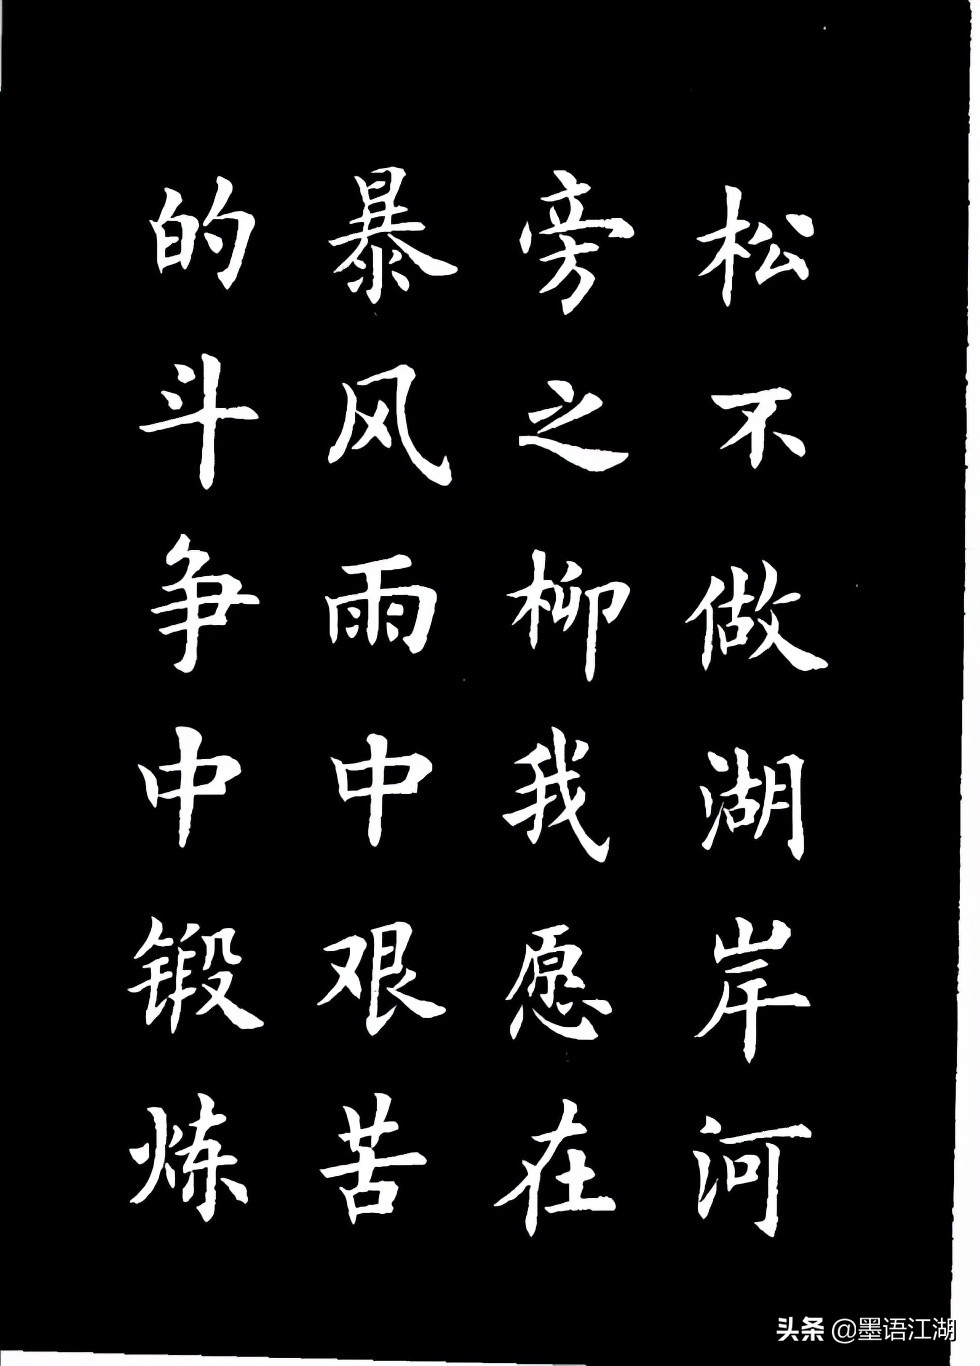 松不做湖岸河
旁之柳我愿在
暴风雨中艰苦
的斗争中锻炼
头条 @墨语江湖